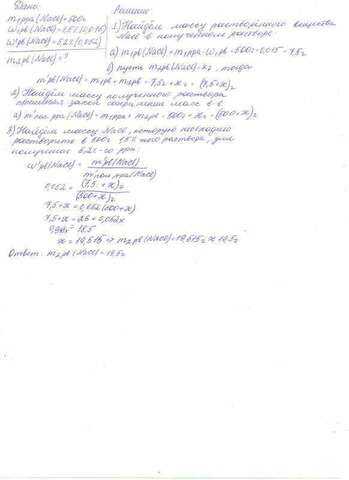 Дано:
m₁ рра (NaCl) = 500г
W₁рв(NaCl) = 1,5% (0,015)
W'рв(NaCl) = 5,2% (0,052)
m₂рв (NaCl) = ?
Решение:
1) Найдём массу растворённого вещества
NaCl в полученном растворе
а) m₁рв (NaCl) = m₁рра · W₁рв = 500г · 0,015 = 7,5г
б) пусть m₂рв(NaCl) = xг, тогда
m'рв(NaCl) = m₁рв + m₂рв = 7,5г + xг = (7,5+x)г
2) Найдём массу полученного раствора
закон сохранения масс в-в
а) m' рра (NaCl) = m₁рра + m₂рв = 500г + xг = (500+x)г
3) Найдём массу NaCl, которую необходимо
растворить в 500г 1,5% раствора, для
получения 5,2% рра:
W'рв(NaCl) = m'рв(NaCl)
m' рра (NaCl)
0,052 = (7,5+x)г
(500+x)г
7,5+x = 0,052(500+x)
7,5+x = 26 + 0,052x
0,948x = 18,5
x = 19,515 ⇒ m₂рв(NaCl) = 19,515г ≈ 19,5г
Ответ: m₂рв(NaCl) = 19,5г